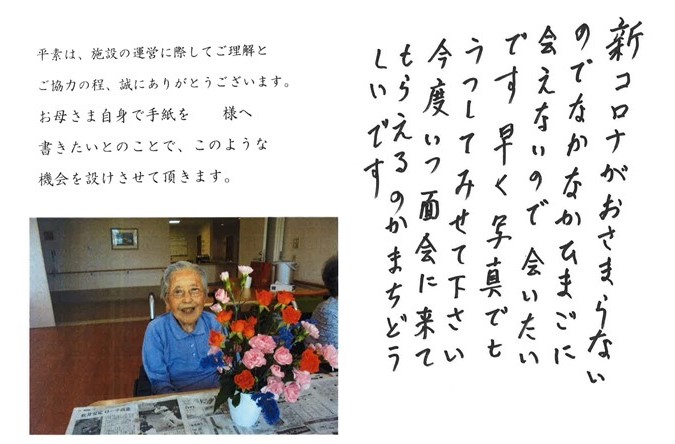 平素は、施設の運営に際してご理解と
ご協力の程、誠にありがとうございます。
お母さま自身で手紙を　　様へ
書きたいとのことで、このような
機会を設けさせて頂きます。
新コロナがおさまらない
のでなかなかひまごに
会えないので会いたい
です早く写真でも
うつしてみせて下さい
今度いつ面会に来て
もらえるのかまちどう
しいです